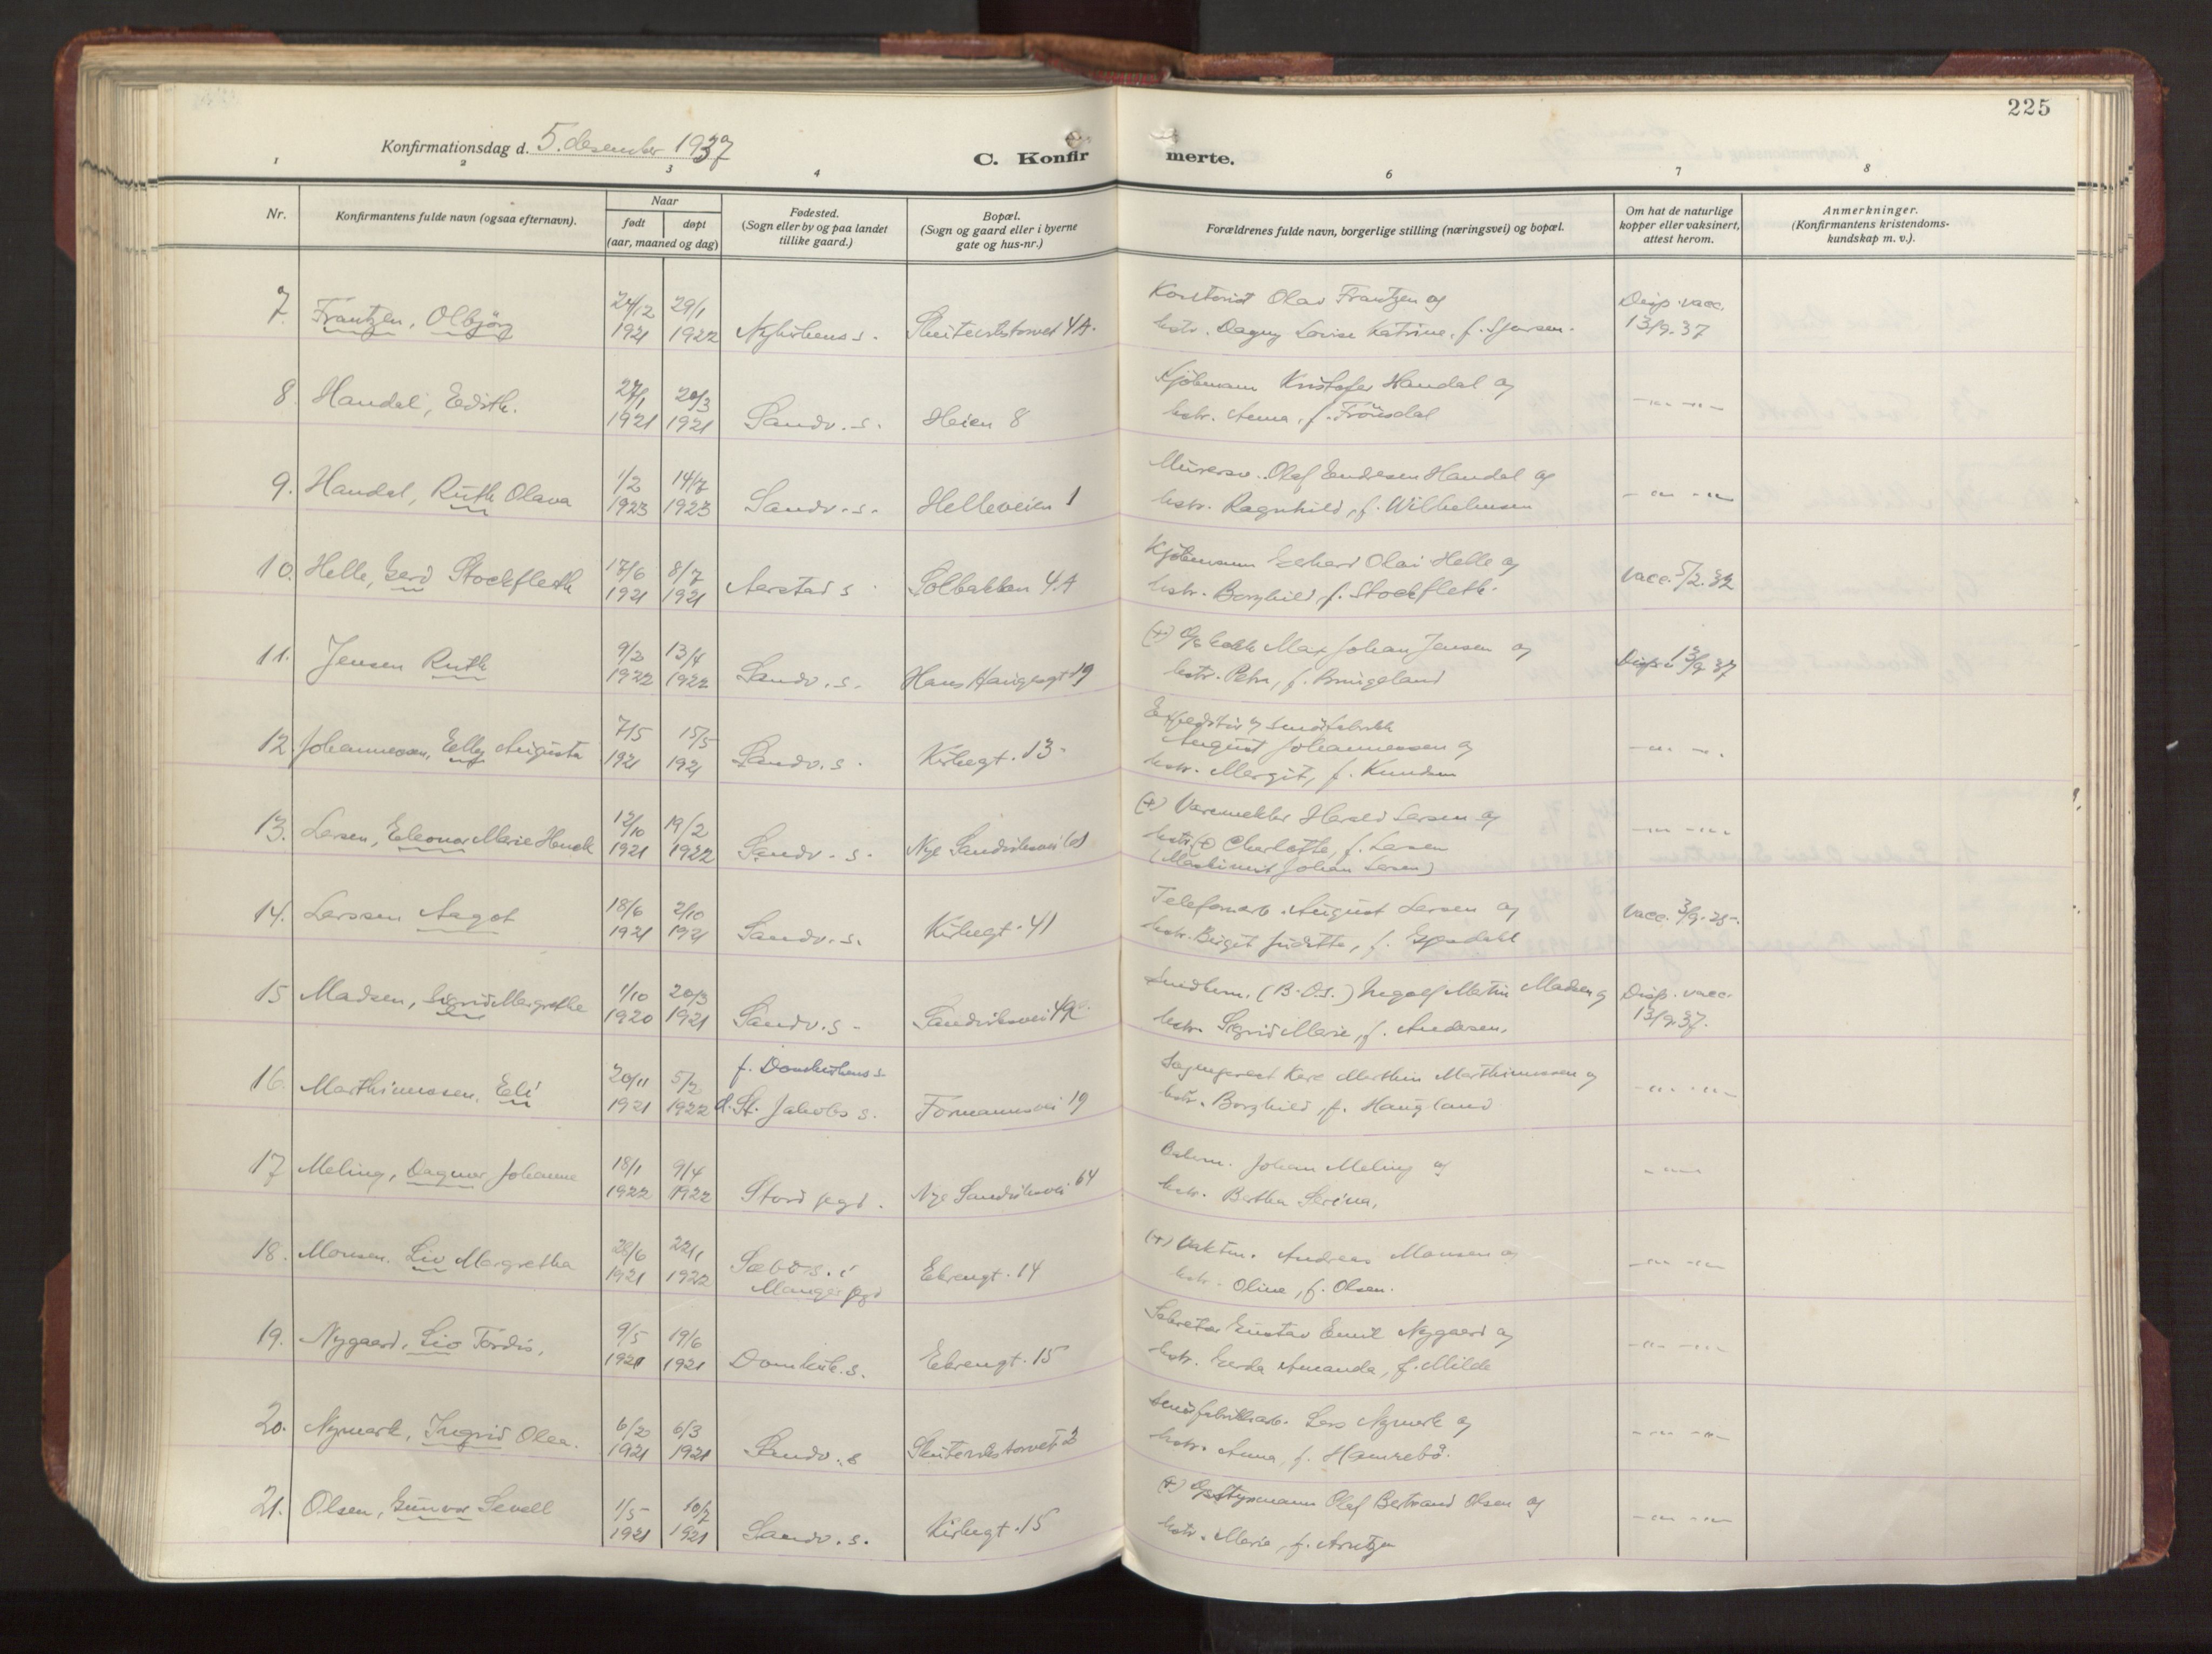 225
Konfirmationsdag d. 5. desember 1937
C. Konfirmerte.
1 2 3 4 6 7 8
Nr.
Konfirmantens fulde navn (ogsaa efternavn).
Naar
født døpt
(aar, maaned og dag)
Fødested.
(Sogn eller by og paa landet
tillike gaard.)
Bopæl.
(Sogn og gaard eller i byerne
gate og hus-nr.)
Forældrenes fulde navn, borgerlige stilling (næringsvei) og bopæl.
Om hat de naturlige
kopper eller vaksinert,
attest herom.
Anmerkninger.
(Konfirmantens kristendoms-
kundskap m. v.).
7. Frantzen, Olbjörg 24/12 29/1 Kontorist Olav Frantzen og Disp. vacc.
1921 1922 Nykirkens s. 4A. hstr. Dagny Lovise Katrine, f. 13/9.37
8. Handal, Edith. 27/1 20/3 Kjöbmann Kristofer Handal og
1921 1921 Sandv. s. Heien 8 hstr. Anna, f. Frönsdal
9. Handal, Ruth Olava 1/2 14/7 Murersv. Olaf Endresen Handal og
1923 1923 Sandv. s. Helleveien 1 hstr. Ragnhild, f. Wilhelmsen
10. Helle, Gerd Stockfleth 17/6 8/7 Kjöbmann Gerhard Olai Helle og
1921 1921 Aarstad s. Solbakken 4A hstr. Borghild, f. Stockfleth. Vacc. 5/2.32
11. Jensen Ruth 9/2 13/4 (+) Max Johan Jensen og
1922 1922 Sandv. s. Hans Haugesgt 19 hstr. Petra, f. Bruigeland 13/9 37
12. Johannessen, Elly Augusta 7/5 15/5 Expeditör
August Johannessen og
1921 1921 Sandv. s. Kirkegt. 13. hstr. Margit, f. Knudsen
13. Larsen, Eleonor Marie 12/10 19/2 (+) Varemekler Harald Larsen og
1921 1922 Sandv. s. Nye Sandviksvei hstr. (+) Charlotte, f. Larsen
(Maskinist Johan Larsen)
14. Larssen Aagot 18/6 2/10 August Larsen og Vacc. 3/9.25.
1921 1921 Sandv. s. Kirkegt. 41 hstr. Birgit Juditta, f. Espedahl
15 Madsen, Sigrid Margrethe 1/10 20/3 (B.O.S.) Ingolf Martin Madsen og Disp. vacc.
1920 1921 Sandv. s. Sandviksvei hstr. Sigrid Marie, f. Andersen. 13/9.37.
16. Marthinussen, Eli 20/11 5/2 f. Domkirkens s. Sogneprest Kare Marthin Marthinussen og
1921 1922 d. St. Jakobs s. Formannsvei 19 hstr. Borghild, f. Haugland
17 Meling, Dagmar Johanne 18/1 9/4 Johan Meling og
1922 1922 Stord pgd. Nye Sandviksvei 64 hstr. Bertha Serina,
18. Monsen. Liv Margretha 28/6 22/1 (+) Vaktm. Andreas Monsen og
1921 1922 Sæbö s. i
Manger pgd Ekrengt. 14 hstr. Oline, f. Olsen.
19. Nygaard, Liv Tordis, 9/5 19/6 Sekretær Gustav Emil Nygaard og
1921 1921 Domkirk. s. Ekrengt. 15 hstr. Gerda Amanda, f. Milde
20. Nymark, Ingrid Olea. 6/2 6/3 Lars Nymark og
1921 1921 Sandv. s Skuteviks torvet 2 hstr. Anna, f. Hamrebö.
21. Olsen, Gunvor Sevell 1/5 10/7 (+) Styrmann Olaf Bertrand Olsen og
1921 1921 Sandv. s. Kirkegt. 15 hstr. Marie, f. Arntzen